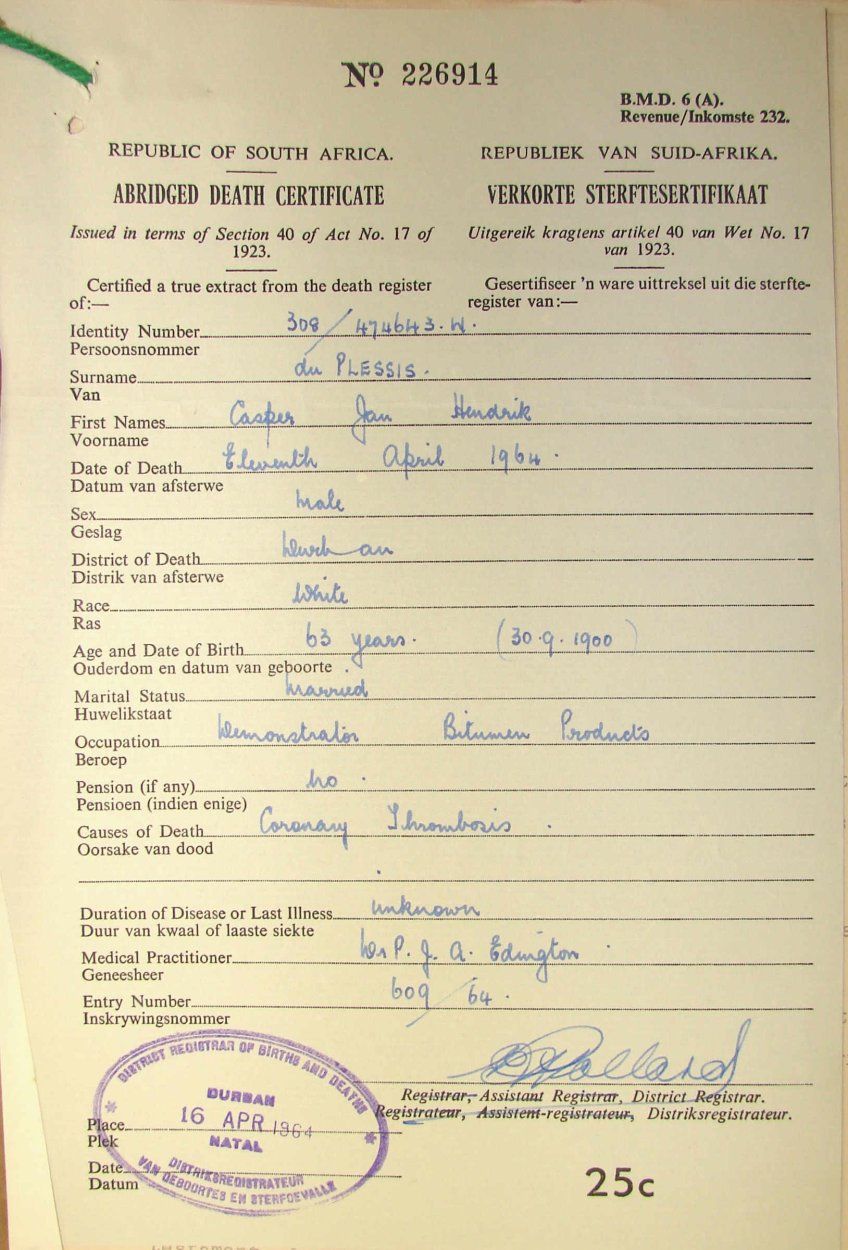 No 226914
B.M.D. 6 (A).
Revenue/Inkomste 232.
REPUBLIC OF SOUTH AFRICA.
ABRIDGED DEATH CERTIFICATE
Issued in terms of Section 40 of Act No. 17 of
1923.
Certified a true extract from the death register
of:—
REPUBLIEK VAN SUID-AFRIKA.
VERKORTE STERFTESERTIFIKAAT
Uitgereik kragtens artikel 40 van Wet No. 17
van 1923.
Gesertifiseer 'n ware uittreksel uit die sterfte-
register van:—
Identity Number 308/474643.W.
Persoonsnommer
Surname du PLESSIS.
Van
First Names Casper Jan Hendrik
Voorname
Date of Death Eleventh April 1964.
Datum van afsterwe
Sex Male
Geslag
District of Death Durban
Distrik van afsterwe
Race White
Ras
Age and Date of Birth 63 years. (30.9.1900)
Ouderdom en datum van geboorte
Marital Status Married
Huwelikstaat
Occupation Demonstrator Bitumen Products
Beroep
Pension (if any) No.
Pensioen (indien enige)
Causes of Death Coronary Thrombosis.
Oorsake van dood
Duration of Disease or Last Illness unknown
Duur van kwaal of laaste siekte
Medical Practitioner Dr P. J. A. Edington.
Geneesheer
Entry Number 609/64.
Inskrywingsnommer
Registrar, Assistant Registrar, District Registrar.
Registrateur, Assistent-registrateur, Distriksregistrateur.
DISTRICT REGISTRAR OF BIRTHS AND DEATHS
DURBAN
16 APR 1964
NATAL
DISTRIKSREGISTRATEUR
VAN GEBOORTES EN STERFGEVALLE
Place
Plek
Date
Datum
25c